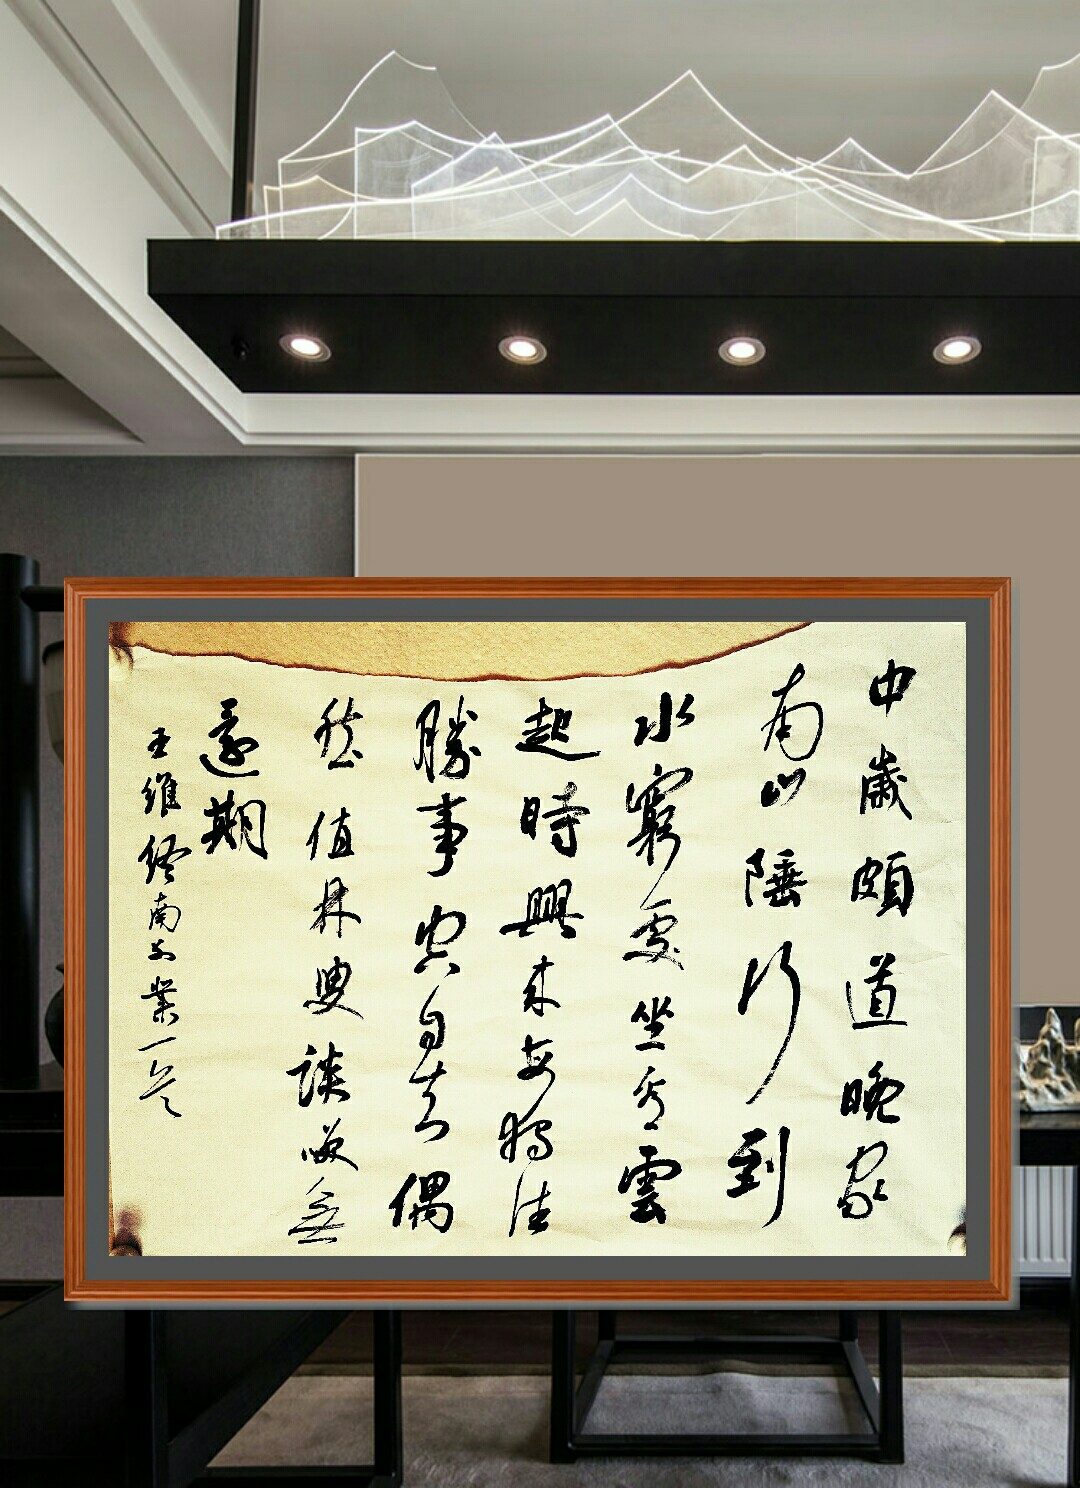 中歲頗道晚家
南山陲行到
水窮處坐看雲
起時興來每獨往
勝事空自知偶
然值林叟談咲無
還期
王維終南别業一首